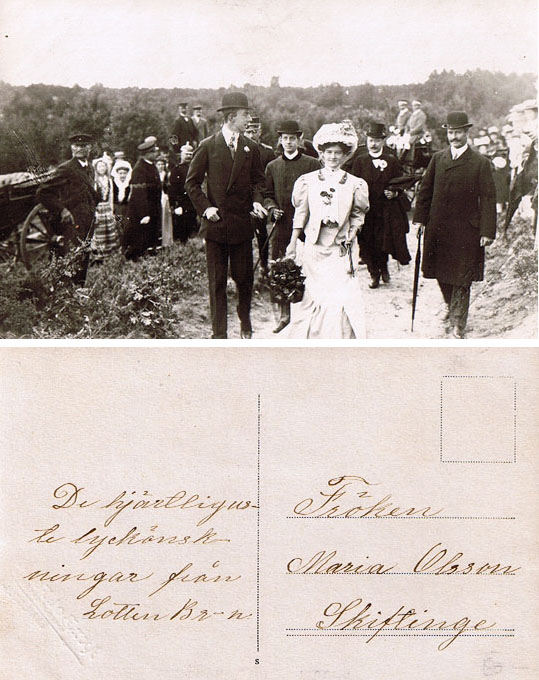 De hjärtligus-
te lyckönsk-
ningar från
Lotten Br-n
Fröken
Maria Olsson
Skiftinge
s